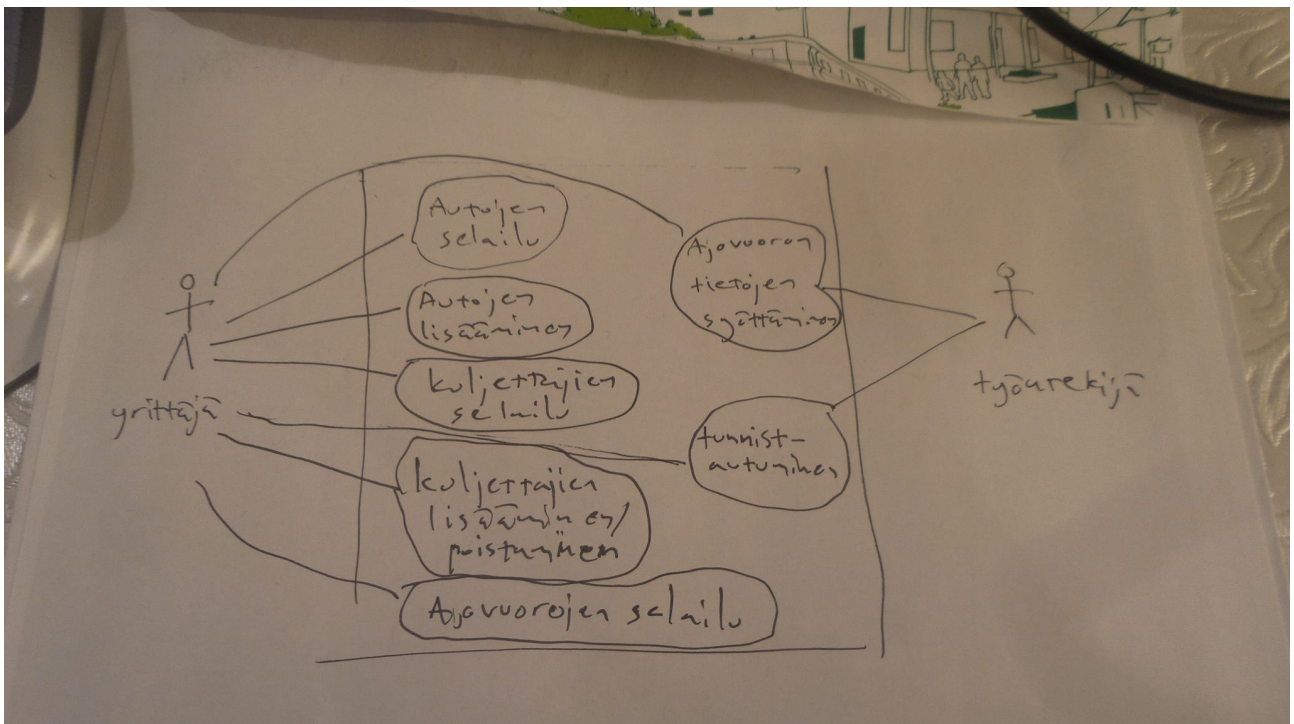 Autojen
selailu
Autojen
lisääminen
kuljettajien
selailu
kuljettajien
lisääminen/
poistaminen
Ajovuorojen selailu
Ajovuoron
tietojen
syöttäminen
tunnist-
autuminen
yrittäjä
työntekijä